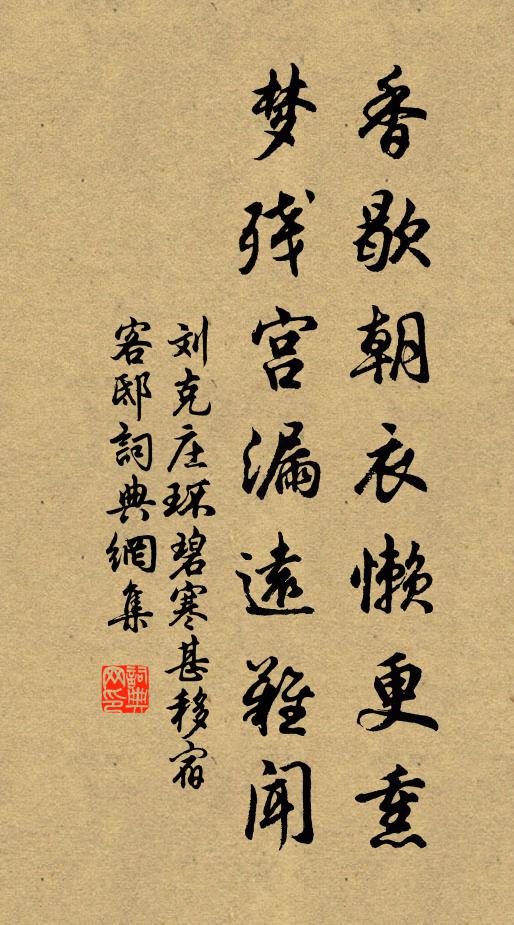 香歇朝衣懒更熏
梦残宫漏遠難闻
刘克庄环碧寒甚移宿
客邸詞典網集
詞典
网印